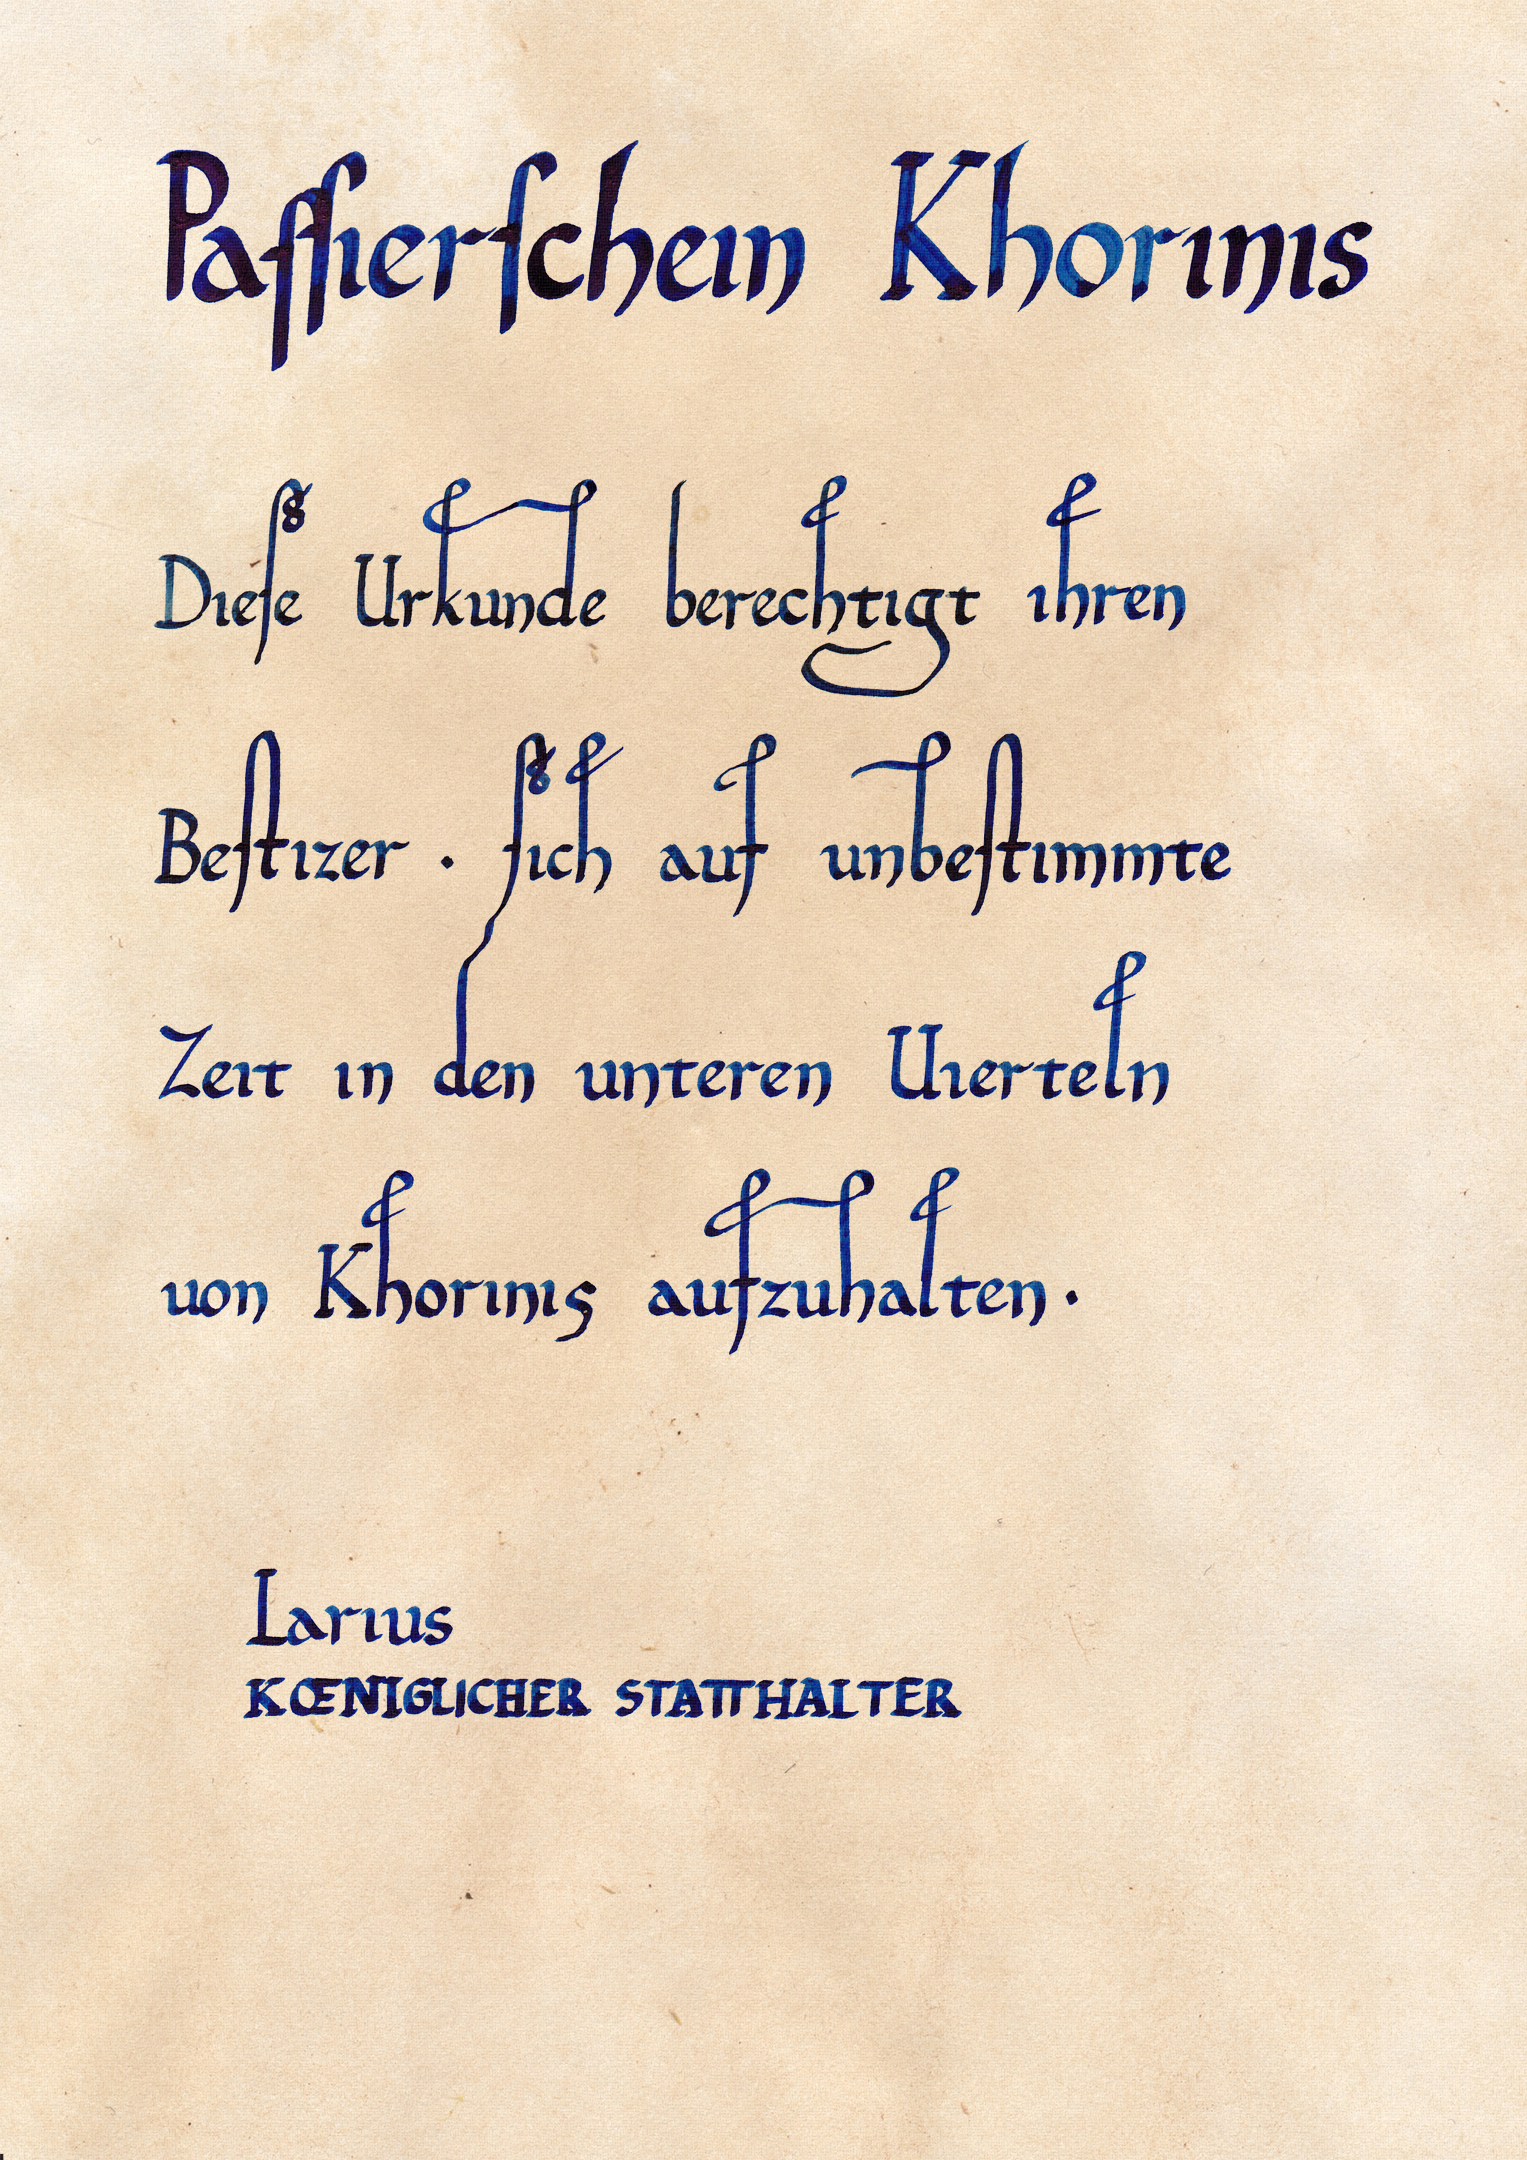 Paſſierſchein Khorinis
Dieſe Urkunde berechtigt ihren
Beſtizer · ſich auf unbeſtimmte
Zeit in den unteren Uierteln
uon Khorinis aufzuhalten ·
Larius
KŒNIGLICHER STATTHALTER